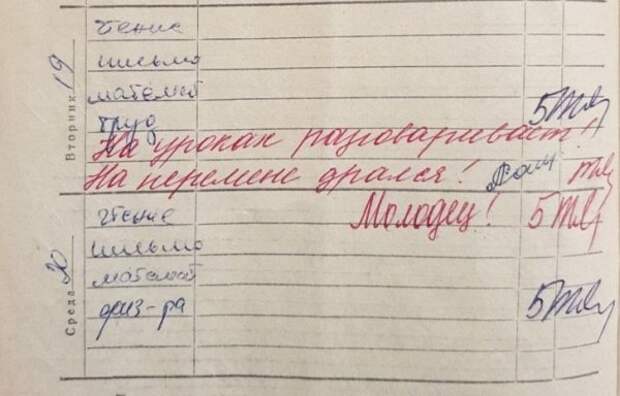 чтение
письмо
Вторник 19
математ
труд 5
На уроках разговаривает!
На перемене дрался!
чтение Молодец! 5
письмо
Среда 20
математ
физ-ра 5